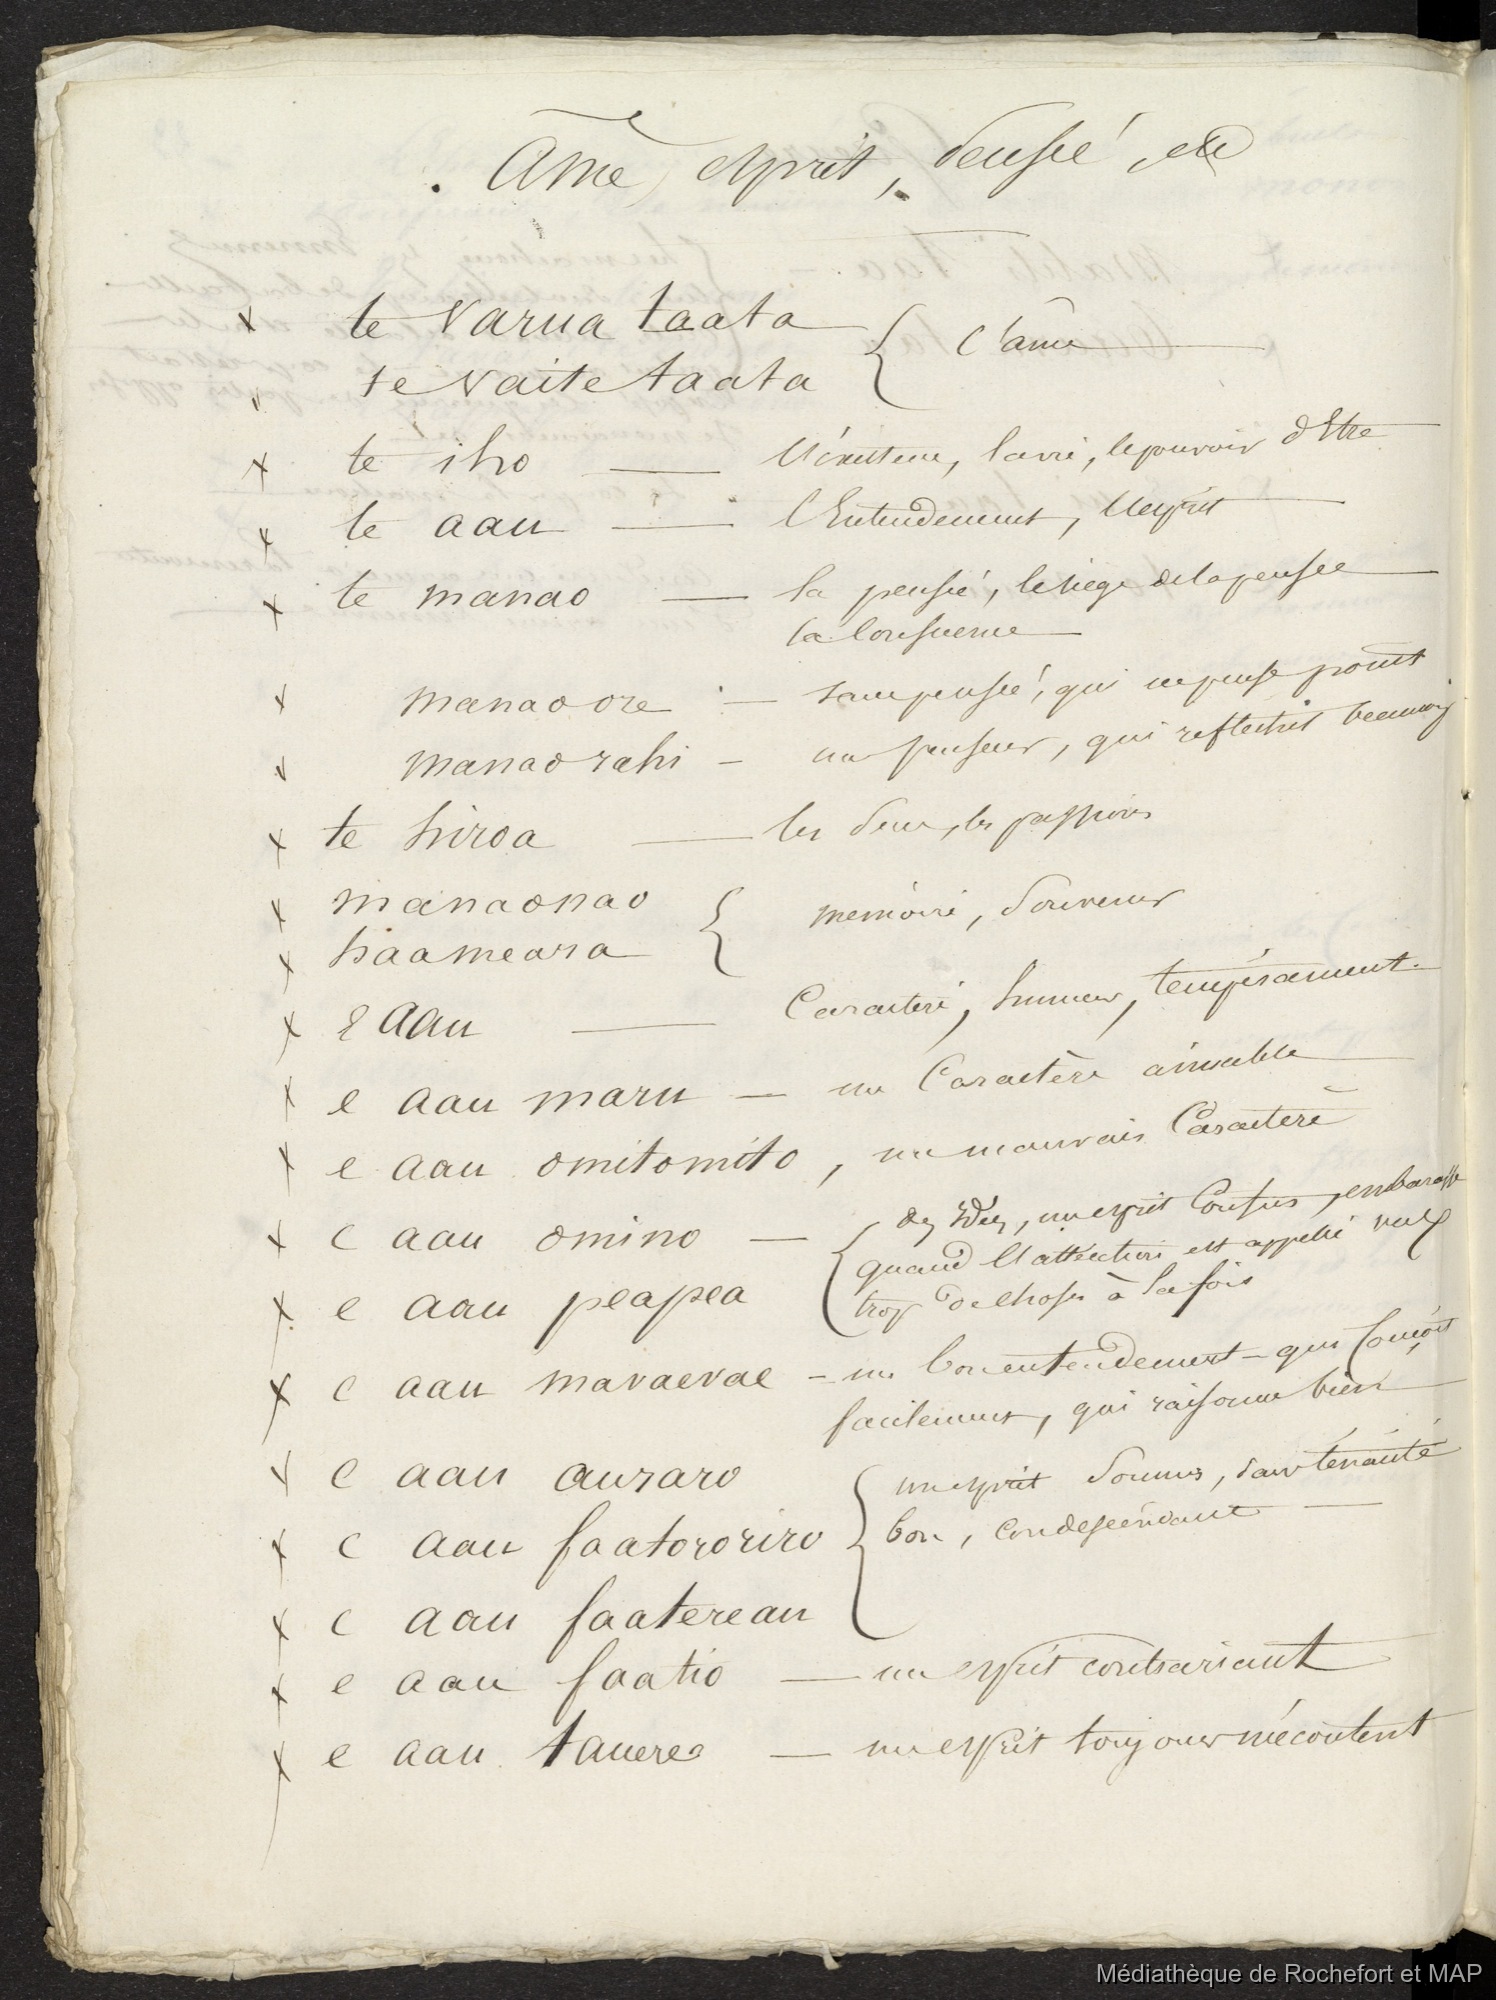 Âme, esprit, pensée, etc
te varua taata
te vaite taata
l'âme
te iho — l'éxistence, la vie, le pouvoir d'Etre
te aau — l'Entendement, l'esprit
te manao — la pensée, le siege de la pensée
la conscience
manao ore — sans pensée, qui ne pense point
manao rahi — un penseur, qui reflechit beaucoup
te hiroa — les sens, les passions
manaonao
haameara
memoire, souvenir
e aau — Caractere, humeur, tempérament.
e aau maru — un Caractère aimable
e aau omitomito, un mauvais Caractere
e aau omino —
e aau peapea
des idées, un esprit confus, embarassé
quand l'attention est appelé vers
trop de choses à la fois
e aau maraerae — un bon entendement — qui conçoit
facilement, qui raisonne bien
e aau auraro
e aau faatororiro
e aau faatereau
un esprit soumis, sans ténacité
bon, condescendant —
e aau faatio — un esprit contrariant
e aau tauere — un esprit toujours mécontent
Médiathèque de Rochefort et MAP